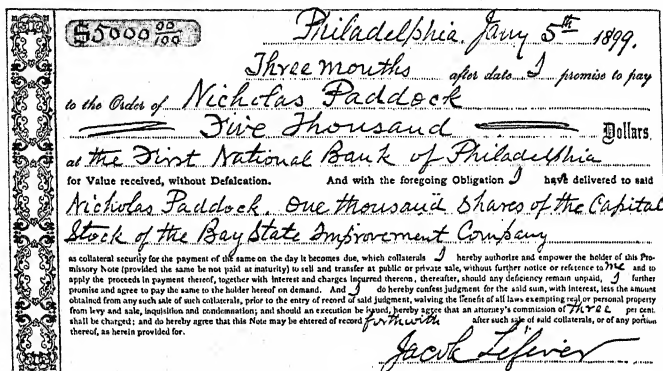 $5000 00/100 Philadelphia, Jany 5th 1899.
Three months after date I promise to pay
to the Order of Nicholas Paddock
Five Thousand Dollars,
at the First National Bank of Philadelphia
for Value received, without Defalcation. And with the foregoing Obligation I have delivered to said
Nicholas Paddock, One thousand Shares of the Capital
Stock of the Bay State Improvement Company
as collateral security for the payment of the same on the day it becomes due, which collaterals I hereby authorize and empower the holder of this Pro-
missory Note (provided the same be not paid at maturity) to sell and transfer at public or private sale, without further notice or reference to me and to
apply the proceeds in payment thereof, together with interest and charges incurred thereon, thereafter, should any deficiency remain unpaid, I further
promise and agree to pay the same to the holder hereof on demand. And I do hereby confess judgment for the said sum, with interest, less the amount
obtained from any such sale of such collaterals, prior to the entry of record of said judgment, waiving the Benefit of all laws exempting real or personal property
from levy and sale, inquisition and condemnation; and should an execution be issued, hereby agree that an attorney's commission of three per cent.
shall be charged; and do hereby agree that this Note may be entered of record forthwith after such sale of said collaterals, or of any portion
thereof, as herein provided for.
Jacob Lefever